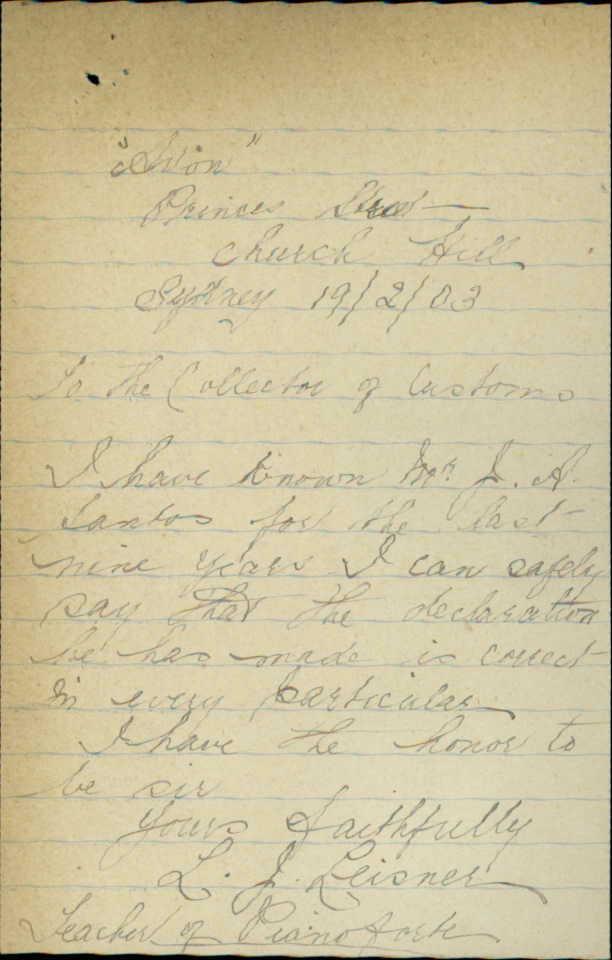 "Avon"
Princes Street
Church Hill
Sydney 19/2/03
To the Collector of Customs
I have known Mr. J. A.
Santos for the last
nine years I can safely
say that the declaration
he has made is correct
in every particular
I have the honor to
be sir
Yours faithfully
L. J. Leisner
Teacher of Pianoforte